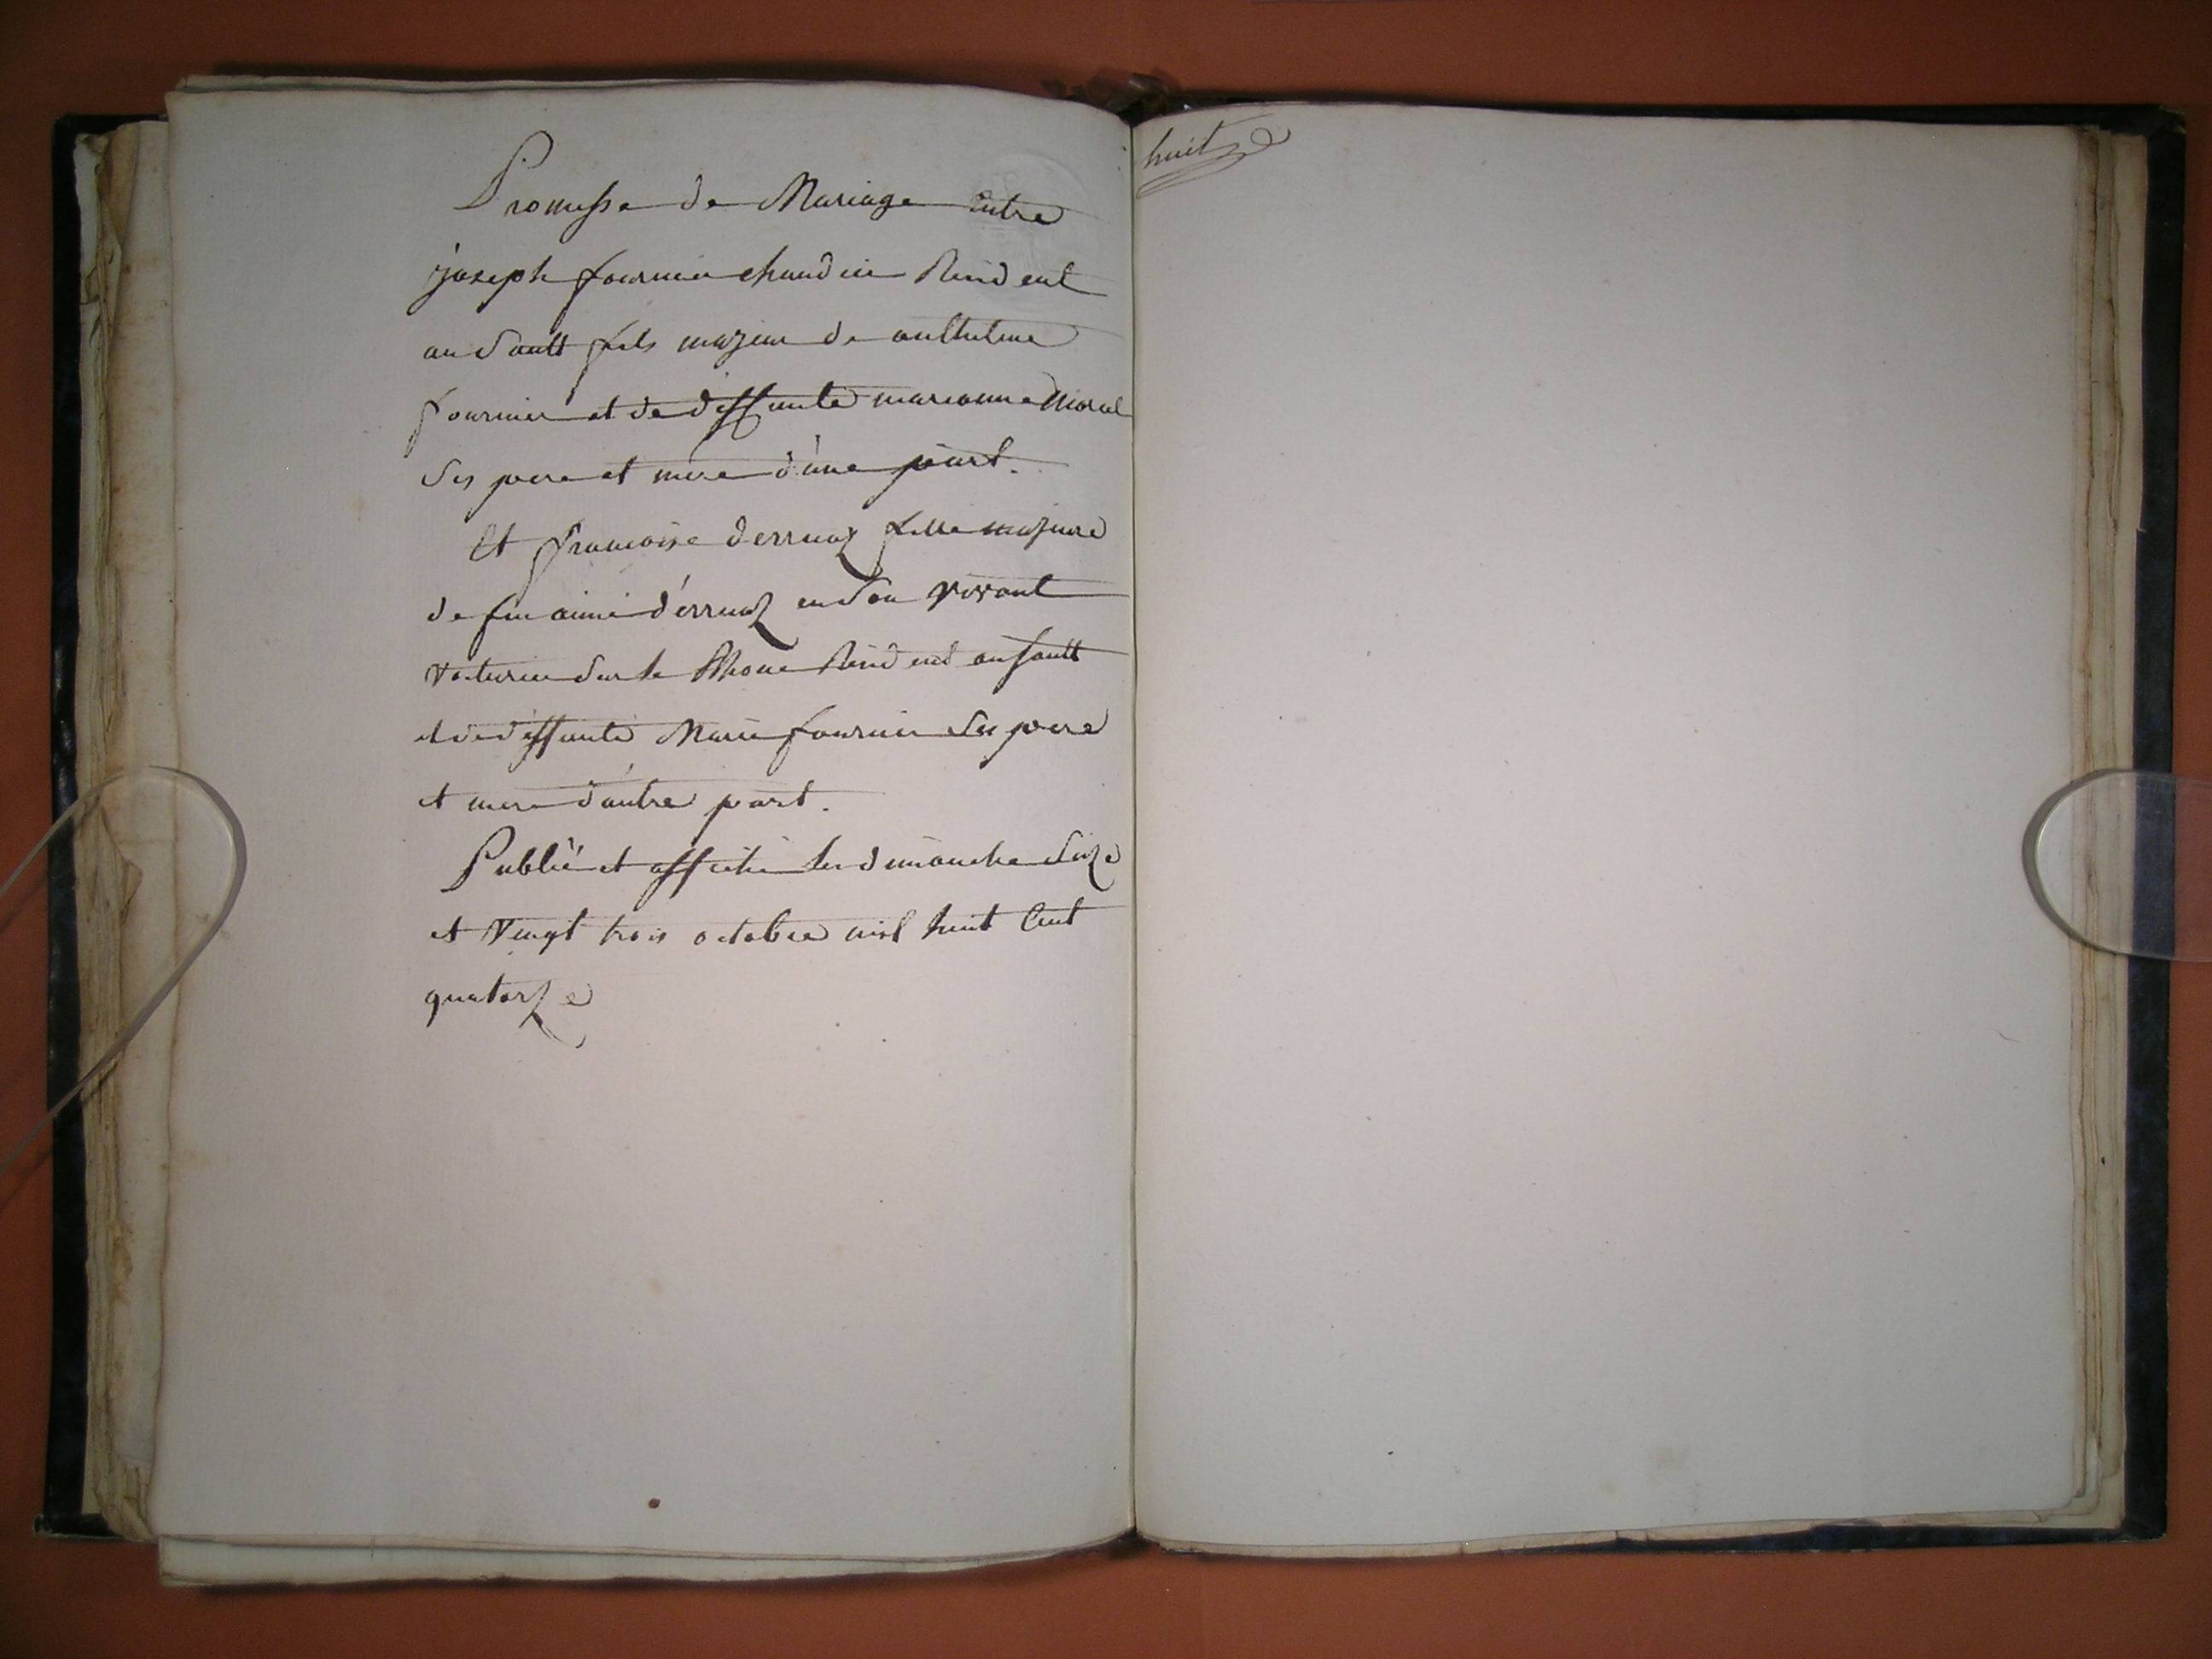 Promesse de Mariage Entre
joseph fournier chaudier Resident
au Sault fils majeur de anthelme
fournier et de deffunte marianne Morel
Ses pere et mere d'une part.
Et francoise derruaz fille majeure
de feu aimé d'erruaz en Son vivant
voiturier Sur le Rhone Resident au Sault
et de deffunte Marie fournier Ses pere
et mere d'autre part.
Publié et affiché les dimanche Seize
et Vingt trois octobre mil huit Cent
quatorze
huit